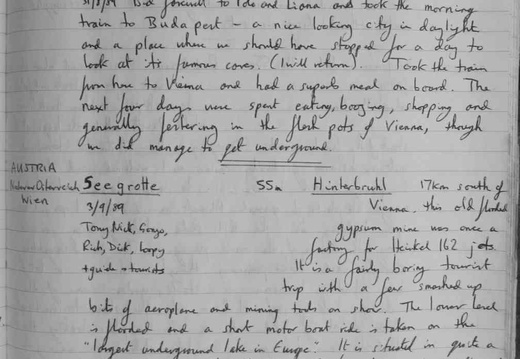 31/8/89 Bid farewell to Pete and Liona and took the morning
train to Budapest - a nice looking city in daylight
and a place where we should have stopped for a day to
look at it's famous caves. (I will return). Took the train
from here to Vienna and had a superb meal on board. The
next four days were spent eating, boozing, shopping and
generally festering in the flesh pots of Vienna, though
we did manage to get underground.
AUSTRIA
Niederösterreich Seegrotte 55m Hinterbruhl 17km south of
Wien Vienna. this old flooded
3/9/89 gypsum mine was once a
Tony, Nick, factory for Heinkel 162 jets.
Rich, Dick, It is a fairly boring tourist
+ guide + tourists trip with a few smashed up
bits of aeroplane and mining tools on show. The lower level
is flooded and a short motor boat ride is taken on the
"largest underground lake in Europe". It is situated in quite a